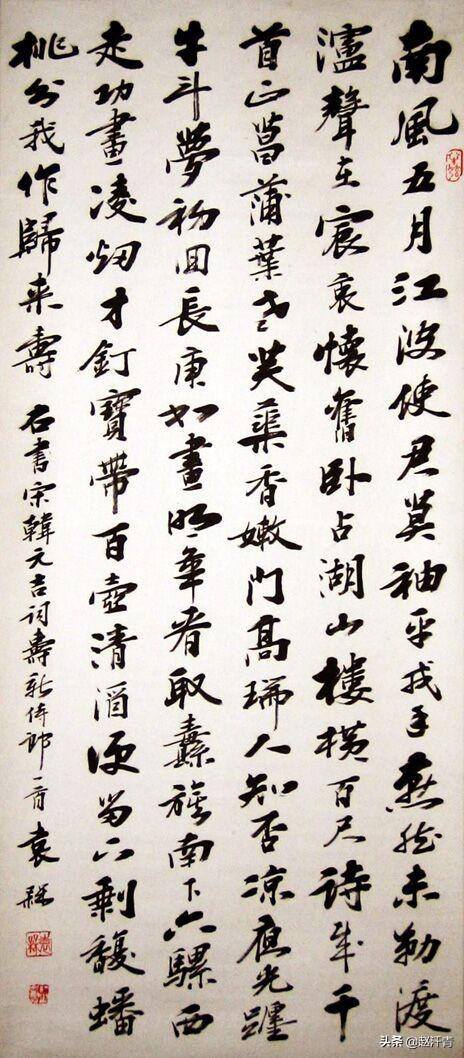 南風五月江波使君莫袖平戎手燕然未勒渡
瀘聲在宸衷懷舊卧占湖山樓橫百尺詩成千
首正菖蒲葉老芙蕖香嫩門高瑞人知否凉夜光躔
牛斗夢初回長庚如畫明年看取纛旗南下六騾西
走功畫凌烟才釘寶帶百壺清酒便留公剩馥蟠
桃分我作歸来壽 右書宋韓元吉詞壽辛侍郎一首 袁
头条 @赵汗青